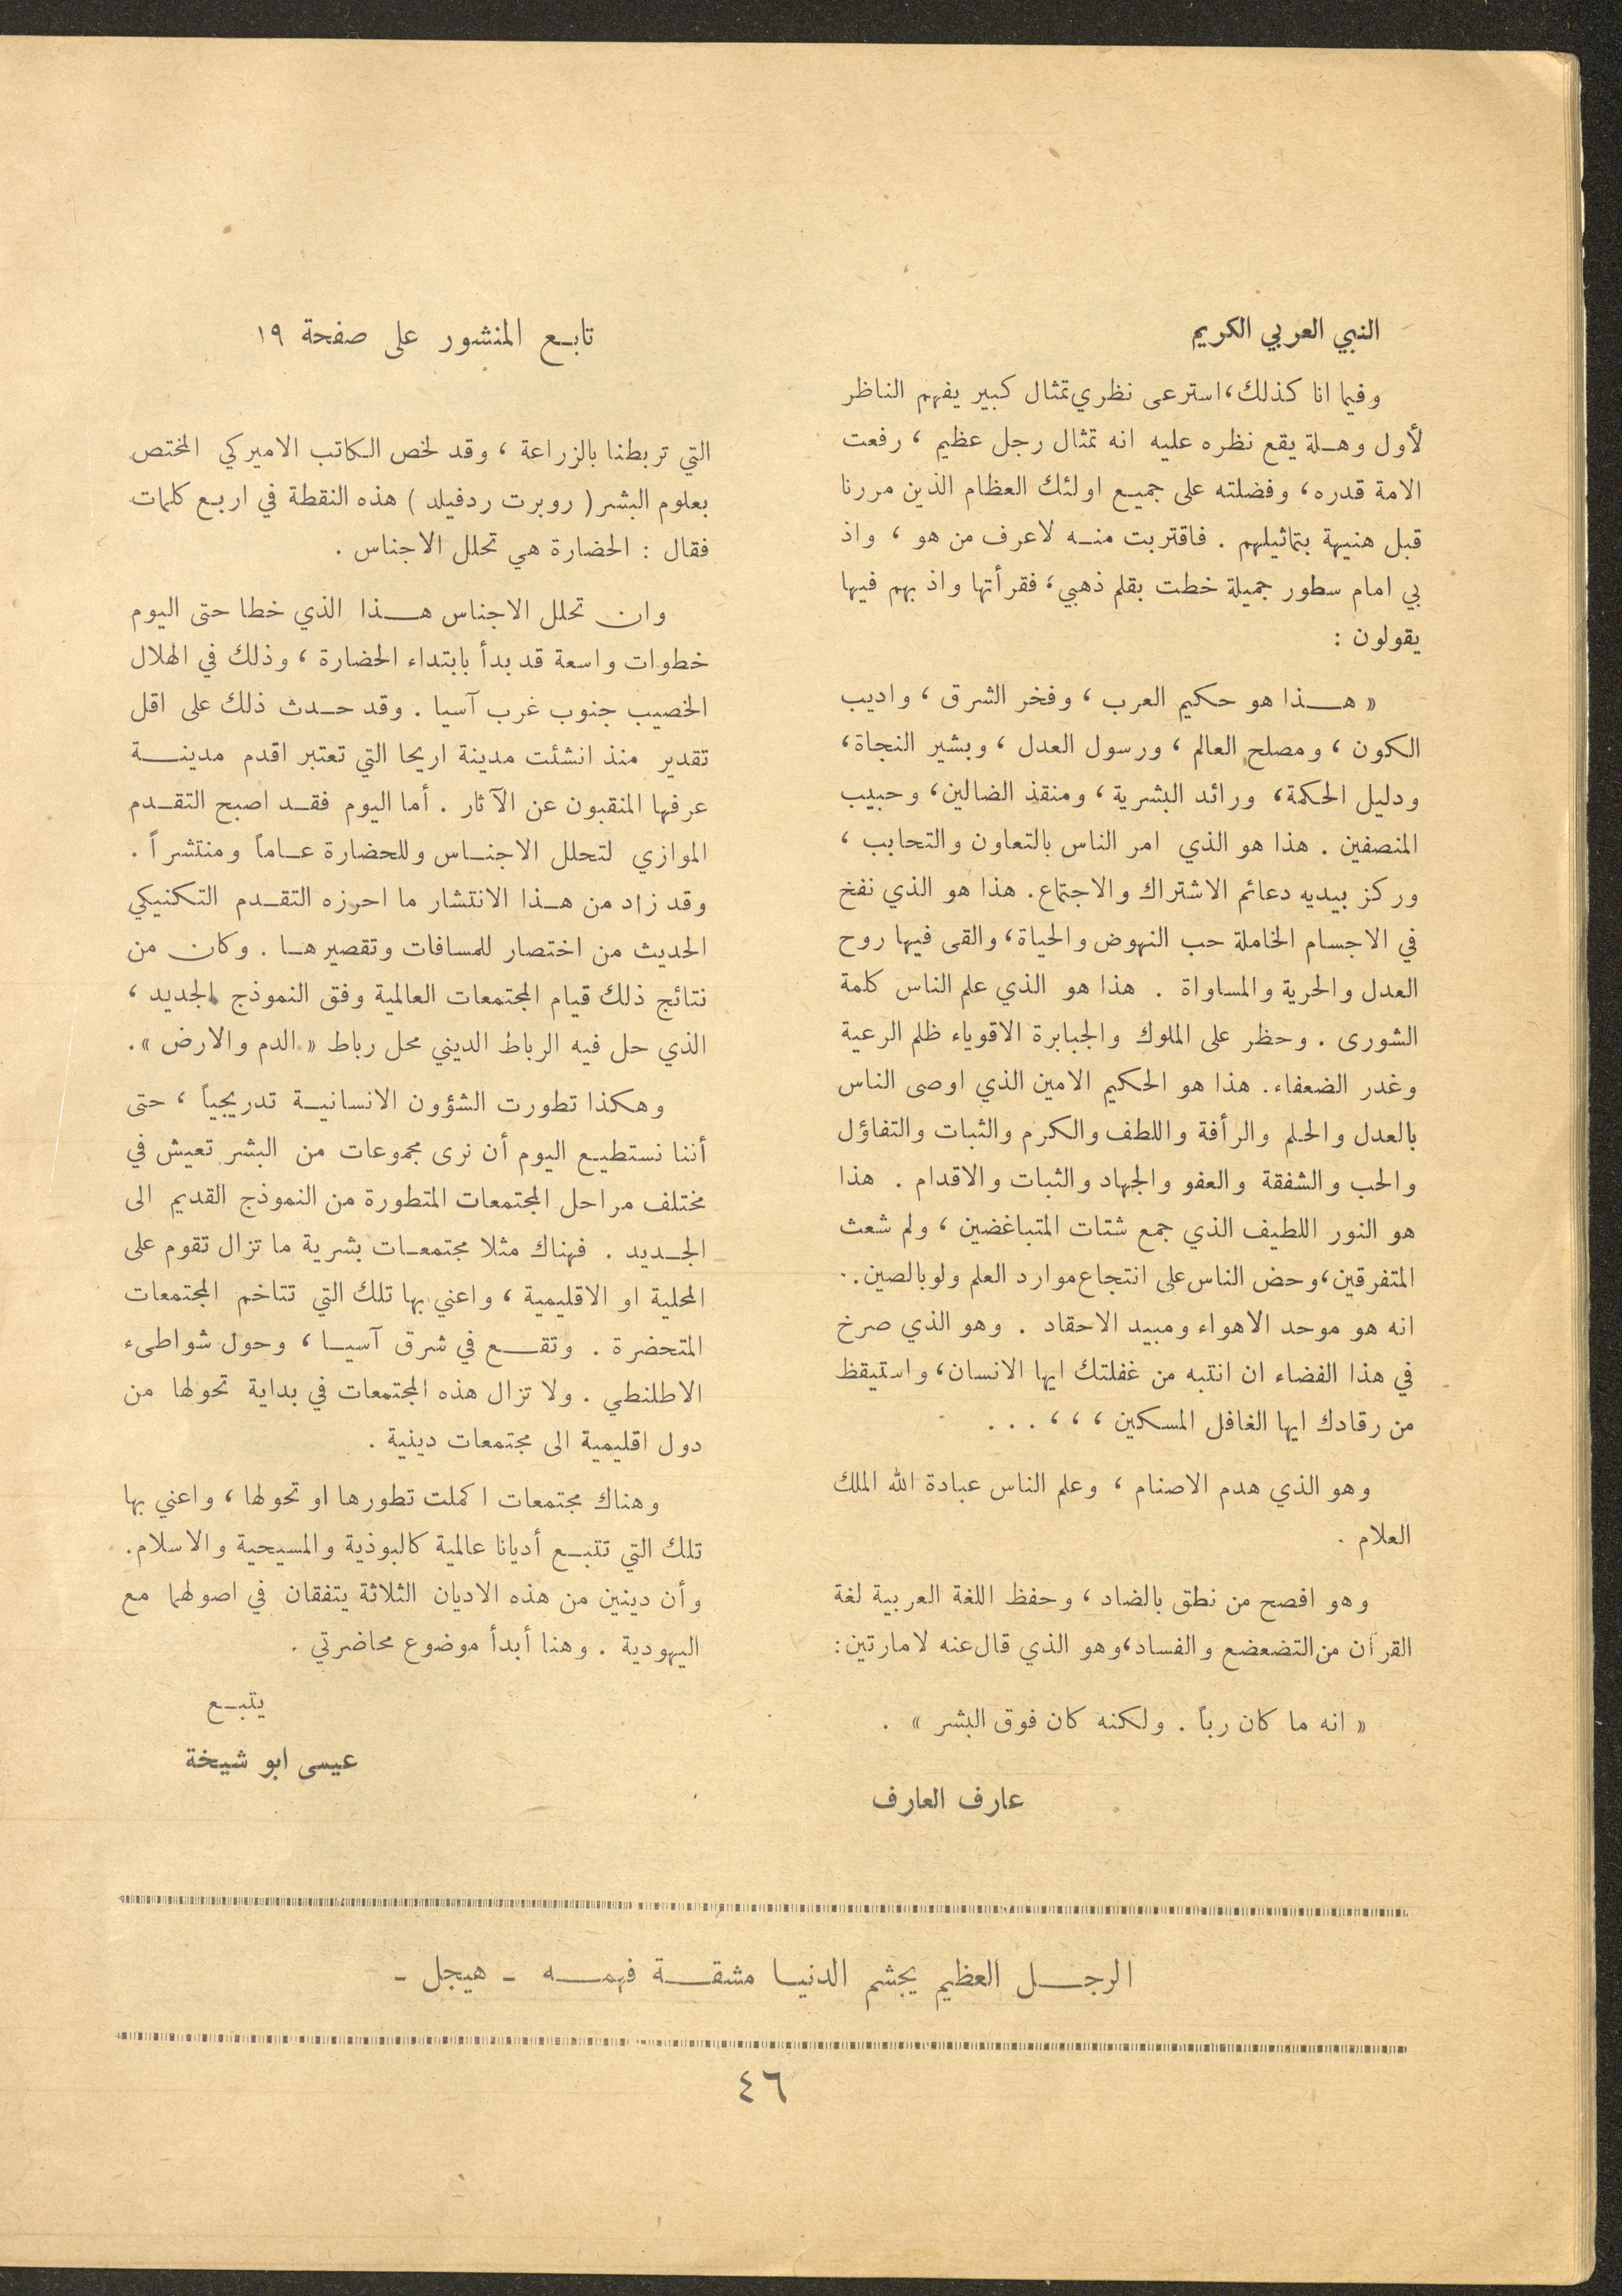 النبي العربي الكريم
وفيما انا كذلك، استرعى نظري تمثال كبير يفهم الناظر
لأول وهلة يقع نظره عليه انه تمثال رجل عظيم ، رفعت
الامة قدره، وفضلته على جميع اولئك العظام الذين مررنا
قبل هنيهة بتماثيلهم . فاقتربت منه لاعرف من هو ، واذ
بي امام سطور جميلة خطت بقلم ذهبي، فقرأتها واذ بهم فيها
يقولون :
« هذا هو حكيم العرب ، وفخر الشرق ، واديب
الكون ، ومصلح العالم ، ورسول العدل ، وبشير النجاة،
ودليل الحكمة، ورائد البشرية ، ومنقذ الضالين، وحبيب
المنصفين . هذا هو الذي امر الناس بالتعاون والتحابب ،
وركز بيديه دعائم الاشتراك والاجتماع. هذا هو الذي نفخ
في الاجسام الخاملة حب النهوض والحياة، والقى فيها روح
العدل والحرية والمساواة . هذا هو الذي علم الناس كلمة
الشورى . وحظر على الملوك والجبابرة الاقوياء ظلم الرعية
وغدر الضعفاء. هذا هو الحكيم الامين الذي اوصى الناس
بالعدل والحلم والرأفة واللطف والكرم والثبات والتفاؤل
والحب والشفقة والعفو والجهاد والثبات والاقدام . هذا
هو النور اللطيف الذي جمع شتات المتباغضين ، ولم شعث
المتفرقين، وحض الناس على انتجاع موارد العلم ولو بالصين.
انه هو موحد الاهواء ومبيد الاحقاد . وهو الذي صرخ
في هذا الفضاء ان انتبه من غفلتك ايها الانسان، واستيقظ
من رقادك ايها الغافل المسكين ، ، ، . . .
وهو الذي هدم الاصنام ، وعلم الناس عبادة الله الملك
العلام .
وهو افصح من نطق بالضاد ، وحفظ اللغة العربية لغة
القرآن من التضعضع والفساد، وهو الذي قال عنه لامارتين:
« انه ما كان رباً . ولكنه كان فوق البشر » .
عارف العارف
تابع المنشور على صفحة ١٩
التي تربطنا بالزراعة ، وقد لخص الكاتب الاميركي المختص
بعلوم البشر ( روبرت ردفيلد ) هذه النقطة في اربع كلمات
فقال : الحضارة هي تحلل الاجناس .
وان تحلل الاجناس هذا الذي خطا حتى اليوم
خطوات واسعة قد بدأ بابتداء الحضارة ، وذلك في الهلال
الخصيب جنوب غرب آسيا . وقد حدث ذلك على اقل
تقدير منذ انشئت مدينة اريحا التي تعتبر اقدم مدينة
عرفها المنقبون عن الآثار . أما اليوم فقد اصبح التقدم
الموازي لتحلل الاجناس وللحضارة عاماً ومنتشراً .
وقد زاد من هذا الانتشار ما احرزه التقدم التكنيكي
الحديث من اختصار للمسافات وتقصيرها . وكان من
نتائج ذلك قيام المجتمعات العالمية وفق النموذج الجديد ،
الذي حل فيه الرباط الديني محل رباط « الدم والارض ».
وهكذا تطورت الشؤون الانسانية تدريجياً ، حتى
أننا نستطيع اليوم أن نرى مجموعات من البشر تعيش في
مختلف مراحل المجتمعات المتطورة من النموذج القديم الى
الجديد . فهناك مثلا مجتمعات بشرية ما تزال تقوم على
المحلية او الاقليمية ، واعني بها تلك التي تتاخم المجتمعات
المتحضرة . وتقع في شرق آسيا ، وحول شواطىء
الاطلنطي . ولا تزال هذه المجتمعات في بداية تحولها من
دول اقليمية الى مجتمعات دينية .
وهناك مجتمعات اكملت تطورها او تحولها ، واعني بها
تلك التي تتبع أديانا عالمية كالبوذية والمسيحية والاسلام.
وأن دينين من هذه الاديان الثلاثة يتفقان في اصولهما مع
اليهودية . وهنا أبدأ موضوع محاضرتي .
يتبع
عيسى ابو شيخة
الرجل العظيم يجشم الدنيا مشقة فهمه - هيجل -
٤٦